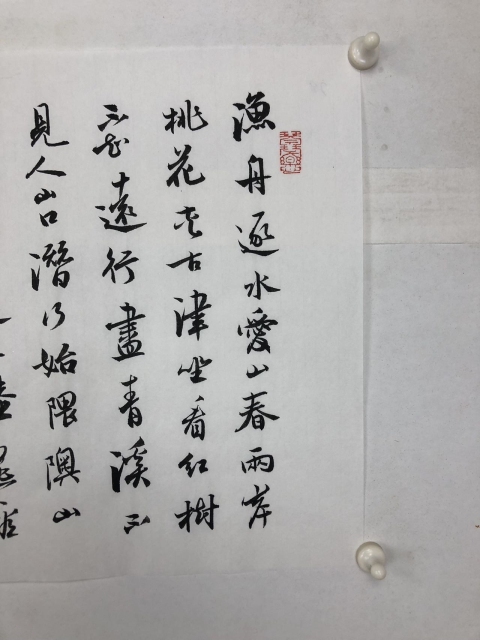 漁舟逐水愛山春兩岸
桃花夾古津坐看紅樹
不知遠行盡青溪不
見人山口潛行始隈隩山